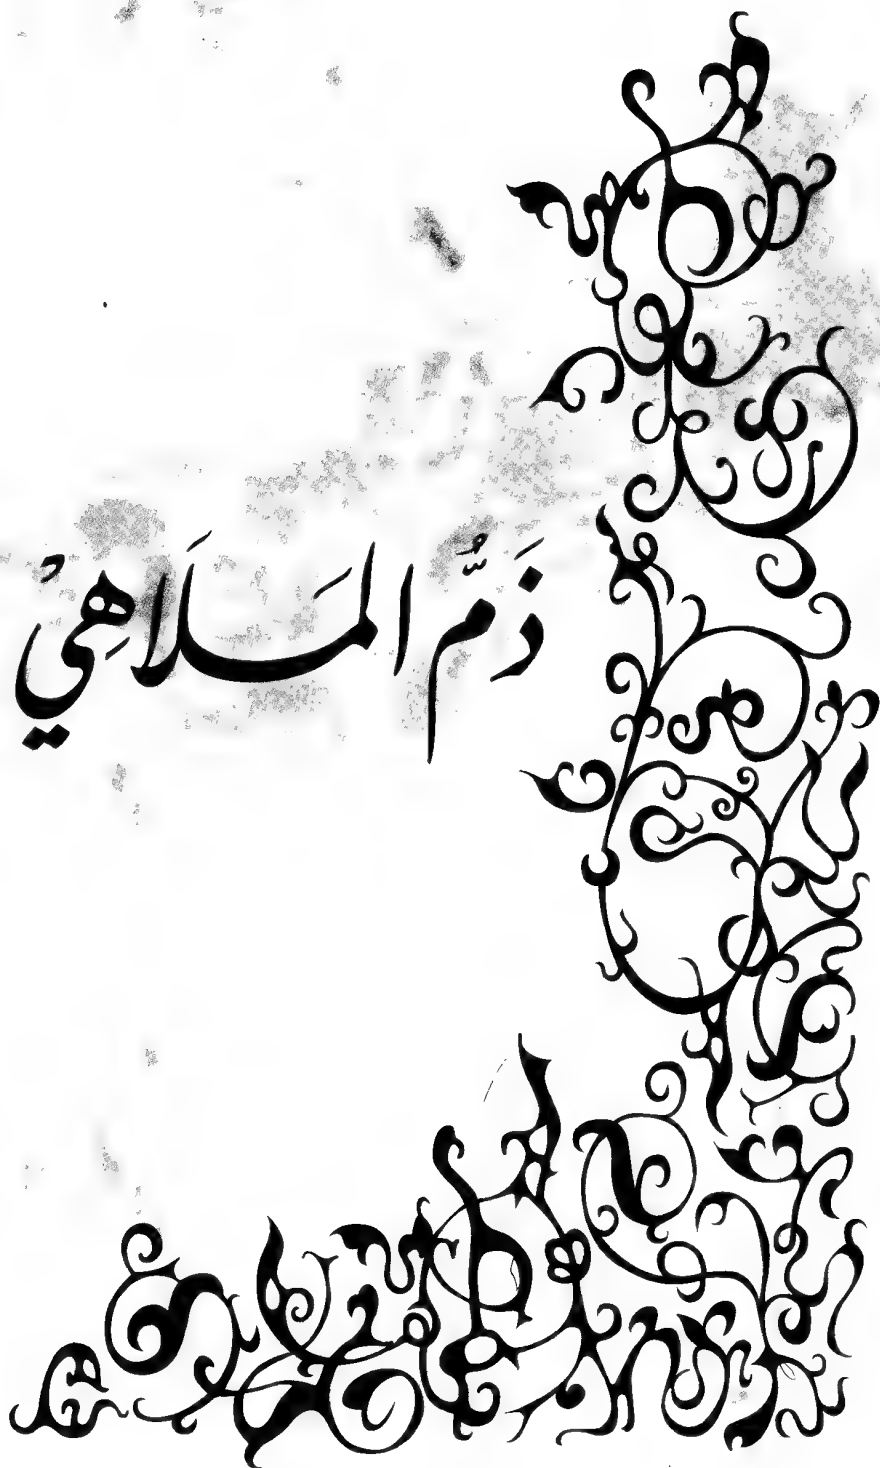 ذَمُّ المَلَاهِيْ